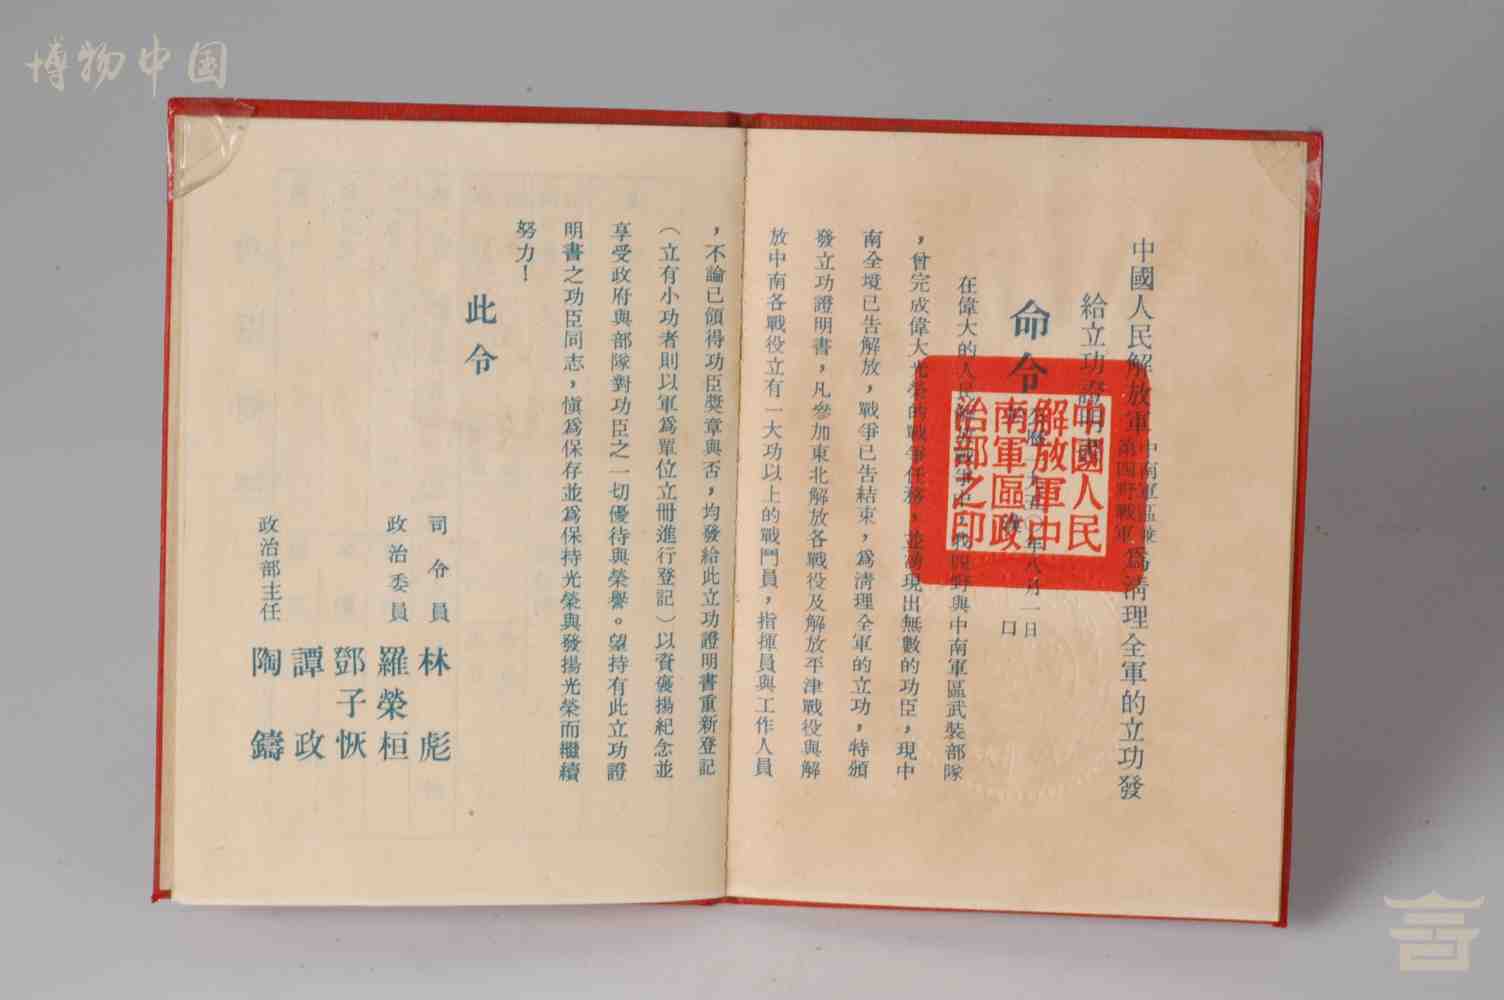 博物中国
中國人民解放軍中南軍區兼
第四野戰軍爲清理全軍的立功發
給立功證明書
命令
公曆一九五〇年八月一日
於漢口
在偉大的人民解放戰爭中，我四野與中南軍區武裝部隊
，曾完成偉大光榮的戰爭任務，並湧現出無數的功臣，現中
南全境已告解放，戰爭已告結束，爲清理全軍的立功，特頒
發立功證明書，凡參加東北解放各戰役及解放平津戰役與解
放中南各戰役立有一大功以上的戰鬥員，指揮員與工作人員
，不論已領得功臣獎章與否，均發給此立功證明書重新登記
（立有小功者則以軍爲單位立冊進行登記）以資褒揚紀念並
享受政府與部隊對功臣之一切優待與榮譽。望持有此立功證
明書之功臣同志，愼爲保存並爲保持光榮與發揚光榮而繼續
努力！
此令
司令員 林彪
政治委員 羅榮桓
鄧子恢
譚政
政治部主任 陶鑄
中國人民
解放軍中
南軍區政
治部之印